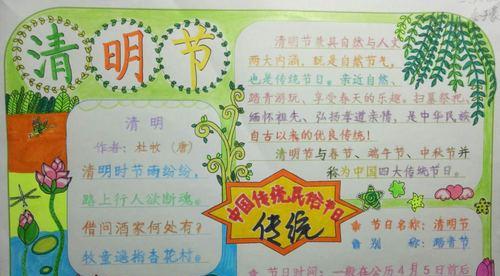 清明节
清明
作者：杜牧（唐）
清明时节雨纷纷，
路上行人欲断魂。
借问酒家何处有？
牧童遥指杏花村。
清明节兼具自然与人文
两大内涵，既是自然节气，
也是传统节日。亲近自然、
踏青游玩、享受春天的乐趣。扫墓祭祀、
缅怀祖先、弘扬孝道亲情，是中华民族
自古以来的优良传统！
清明节与春节、端午节、中秋节并
称为中国四大传统节日。
中国传统民俗节日
传统
节日名称：清明节
别称：踏青节
节日时间：一般在公历4月5日前后